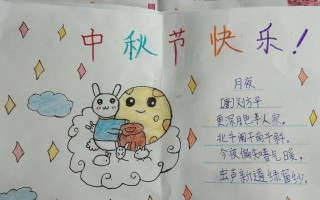 中秋节快乐!
月夜
[唐]刘方平
更深月色半人家,
北斗阑干南斗斜。
今夜偏知春气暖,
虫声新透绿窗纱。